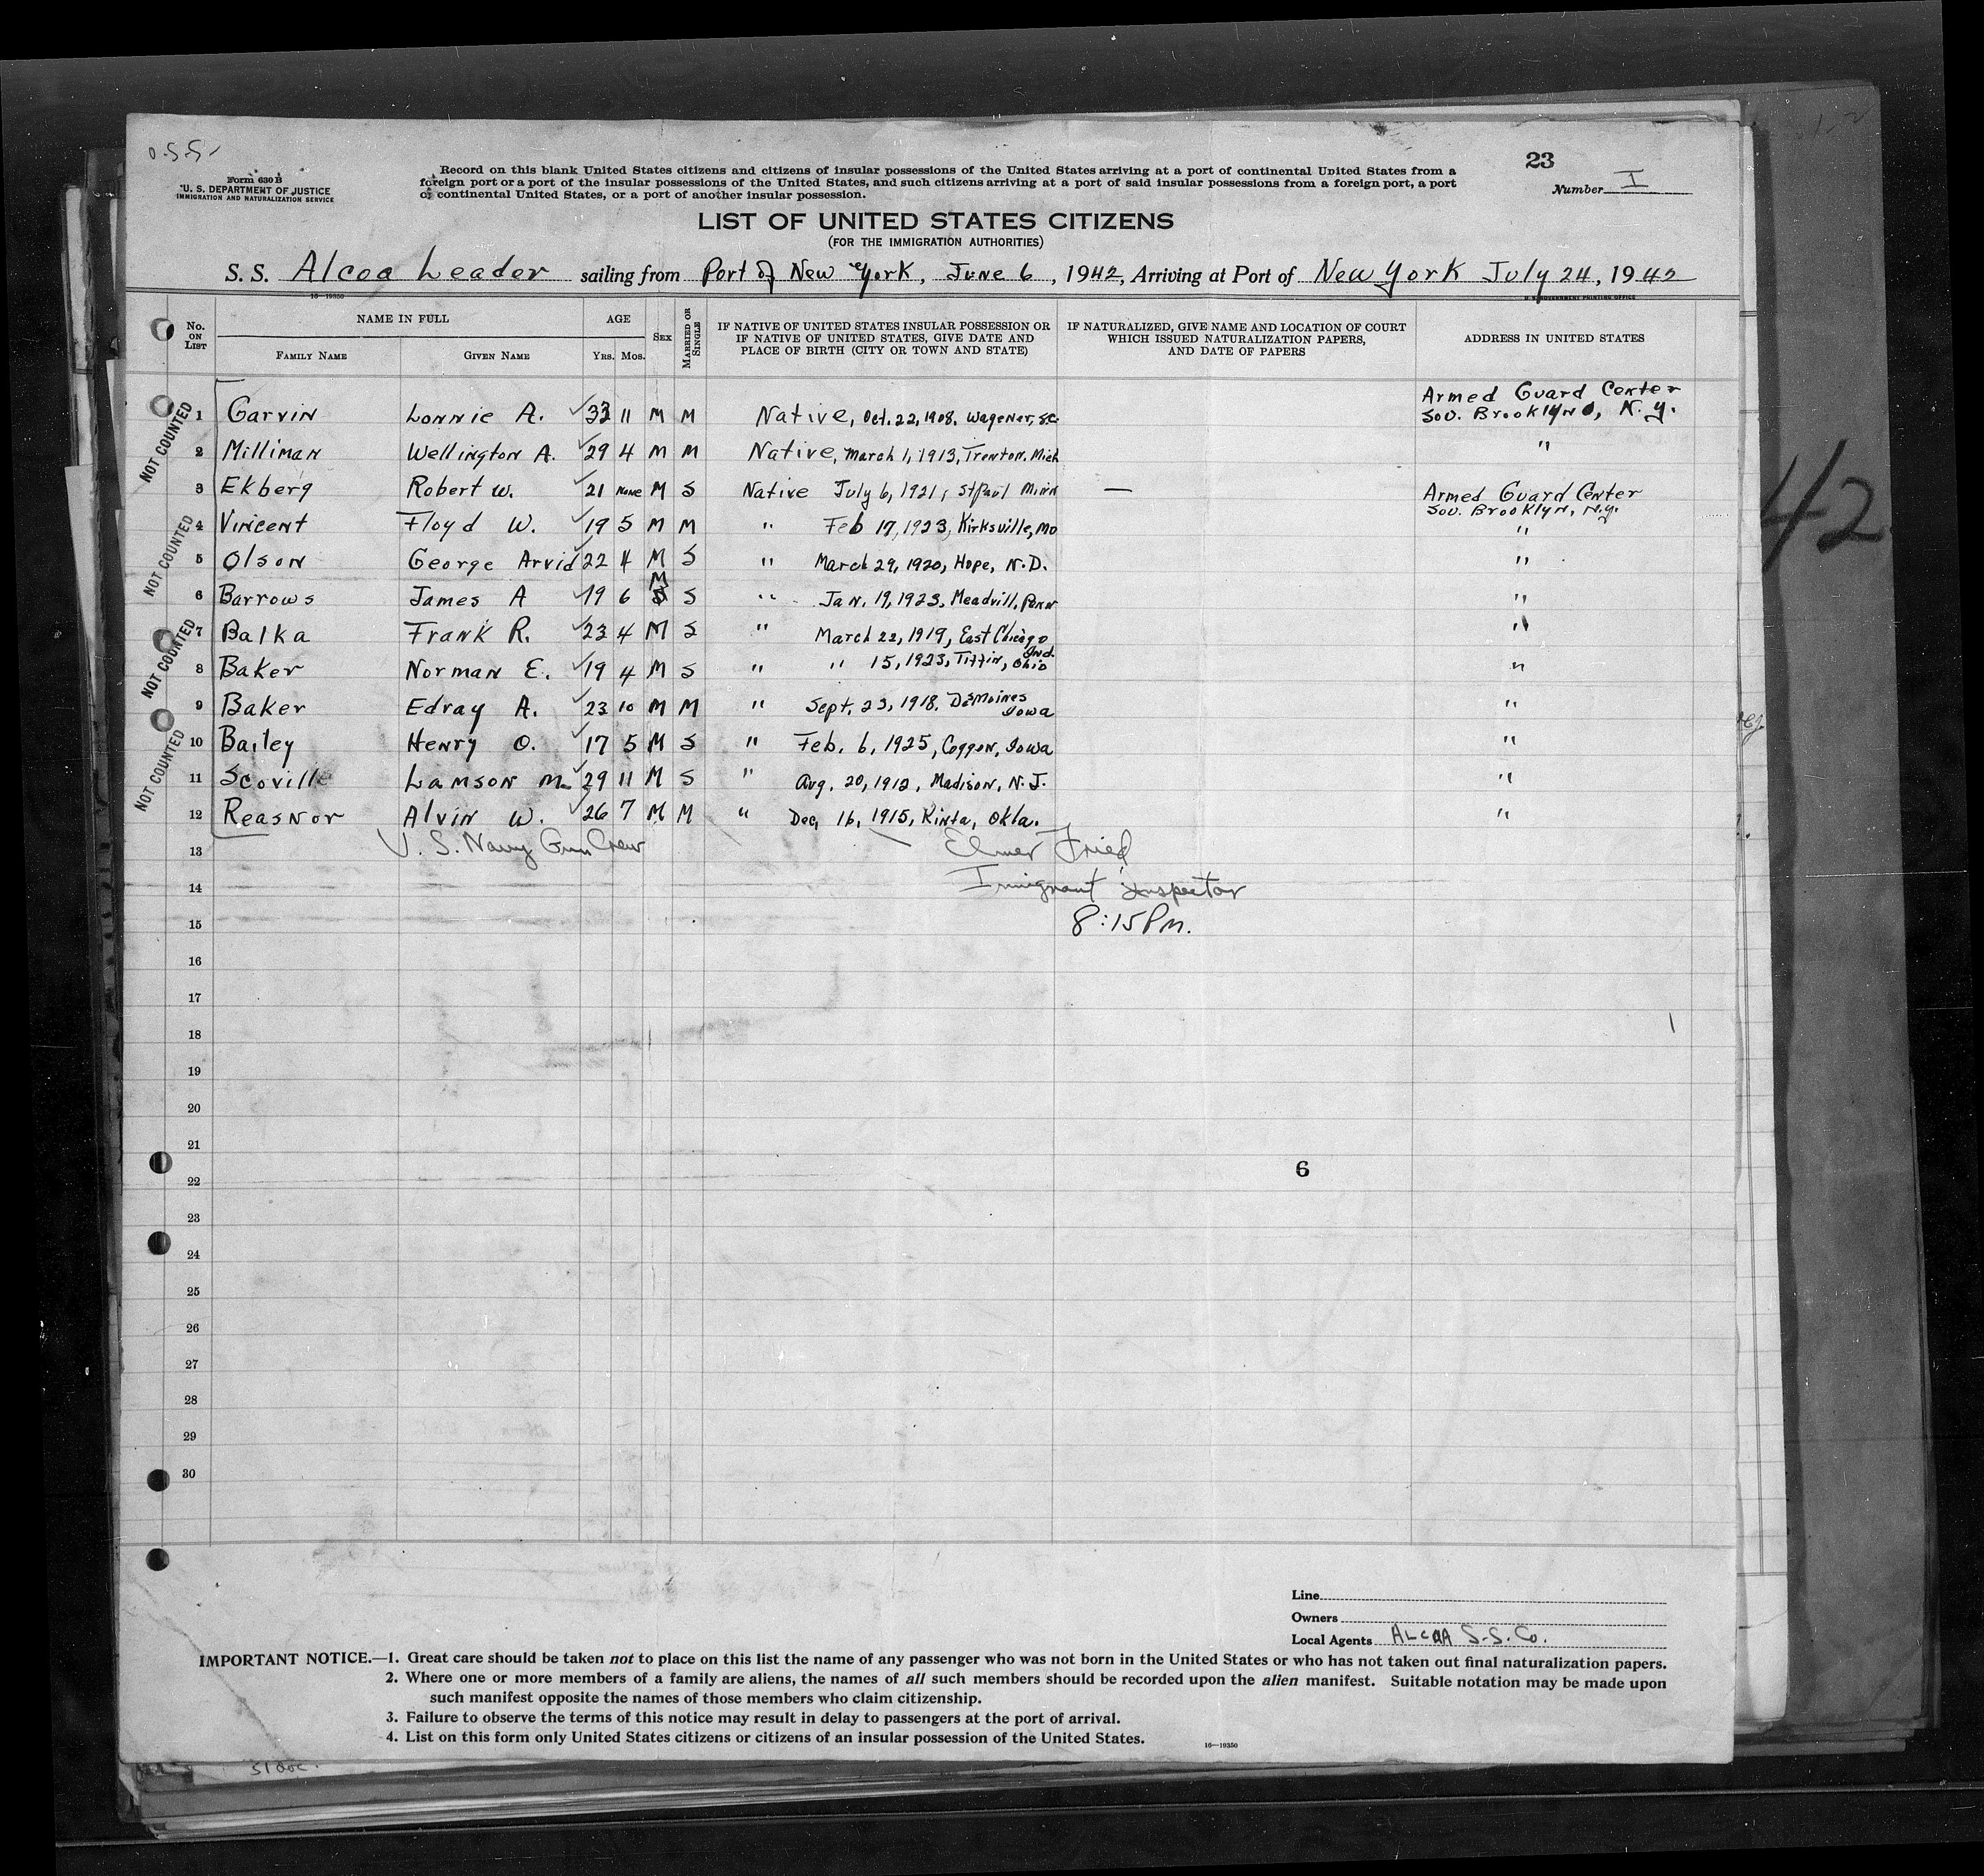 O.S.S.
23
Form 630 B
U. S. DEPARTMENT OF JUSTICE
IMMIGRATION AND NATURALIZATION SERVICE
Record on this blank United States citizens and citizens of insular possessions of the United States arriving at a port of continental United States from a
foreign port or a port of the insular possessions of the United States, and such citizens arriving at a port of said insular possessions from a foreign port, a port
of continental United States, or a port of another insular possession.
Number I
LIST OF UNITED STATES CITIZENS
(FOR THE IMMIGRATION AUTHORITIES)
S. S. Alcoa Leader sailing from Port of New York, June 6, 1942, Arriving at Port of New York July 24, 1942
16—19350
No. ON LIST
NAME IN FULL
FAMILY NAME GIVEN NAME
AGE
YRS. MOS.
SEX
MARRIED OR SINGLE
IF NATIVE OF UNITED STATES INSULAR POSSESSION OR
IF NATIVE OF UNITED STATES, GIVE DATE AND
PLACE OF BIRTH (CITY OR TOWN AND STATE)
IF NATURALIZED, GIVE NAME AND LOCATION OF COURT
WHICH ISSUED NATURALIZATION PAPERS,
AND DATE OF PAPERS
ADDRESS IN UNITED STATES
NOT COUNTED
NOT COUNTED
NOT COUNTED
NOT COUNTED
1 Garvin Lonnie A. 33 11 M M Native, Oct. 22, 1908. Wagener, S.C. Armed Guard Center
Sou. Brooklyn, N.Y.
2 Milliman Wellington A. 29 4 M M Native, March 1, 1913, Trenton. Mich "
3 Ekberg Robert W. 21 None M S Native July 6, 1921, St Paul Minn — Armed Guard Center
Sou. Brooklyn, N.Y.
4 Vincent Floyd W. 19 5 M M " Feb 17, 1923, Kirksville, Mo "
5 Olson George Arvid 22 4 M S " March 29, 1920, Hope, N.D. "
6 Barrows James A 19 6 M S " Jan. 19, 1923, Meadvill, Penn "
7 Balka Frank R. 23 4 M S " March 22, 1919, East Chicago Ind. "
8 Baker Norman E. 19 4 M S " " 15, 1923, Tiffin, Ohio "
9 Baker Edray A. 23 10 M M " Sept. 23, 1918. DesMoines Iowa "
10 Bailey Henry O. 17 5 M S " Feb. 6, 1925, Coggon, Iowa "
11 Scoville Lamson M. 29 11 M S " Aug. 20, 1912, Madison, N.J. "
12 Reasnor Alvin W. 26 7 M M " Dec, 16, 1915, Kinta, Okla. "
13 U.S. Navy Gun Crew Elmer Fried
14 Imigrant Inspector
15 8:15 Pm.
16
17
18
19
20
21
6
22
23
24
25
26
27
28
29
30
42
Line
Owners
Local Agents ALCOA S.S. Co.
IMPORTANT NOTICE.—1. Great care should be taken not to place on this list the name of any passenger who was not born in the United States or who has not taken out final naturalization papers.
2. Where one or more members of a family are aliens, the names of all such members should be recorded upon the alien manifest. Suitable notation may be made upon
such manifest opposite the names of those members who claim citizenship.
3. Failure to observe the terms of this notice may result in delay to passengers at the port of arrival.
4. List on this form only United States citizens or citizens of an insular possession of the United States.
16—19350